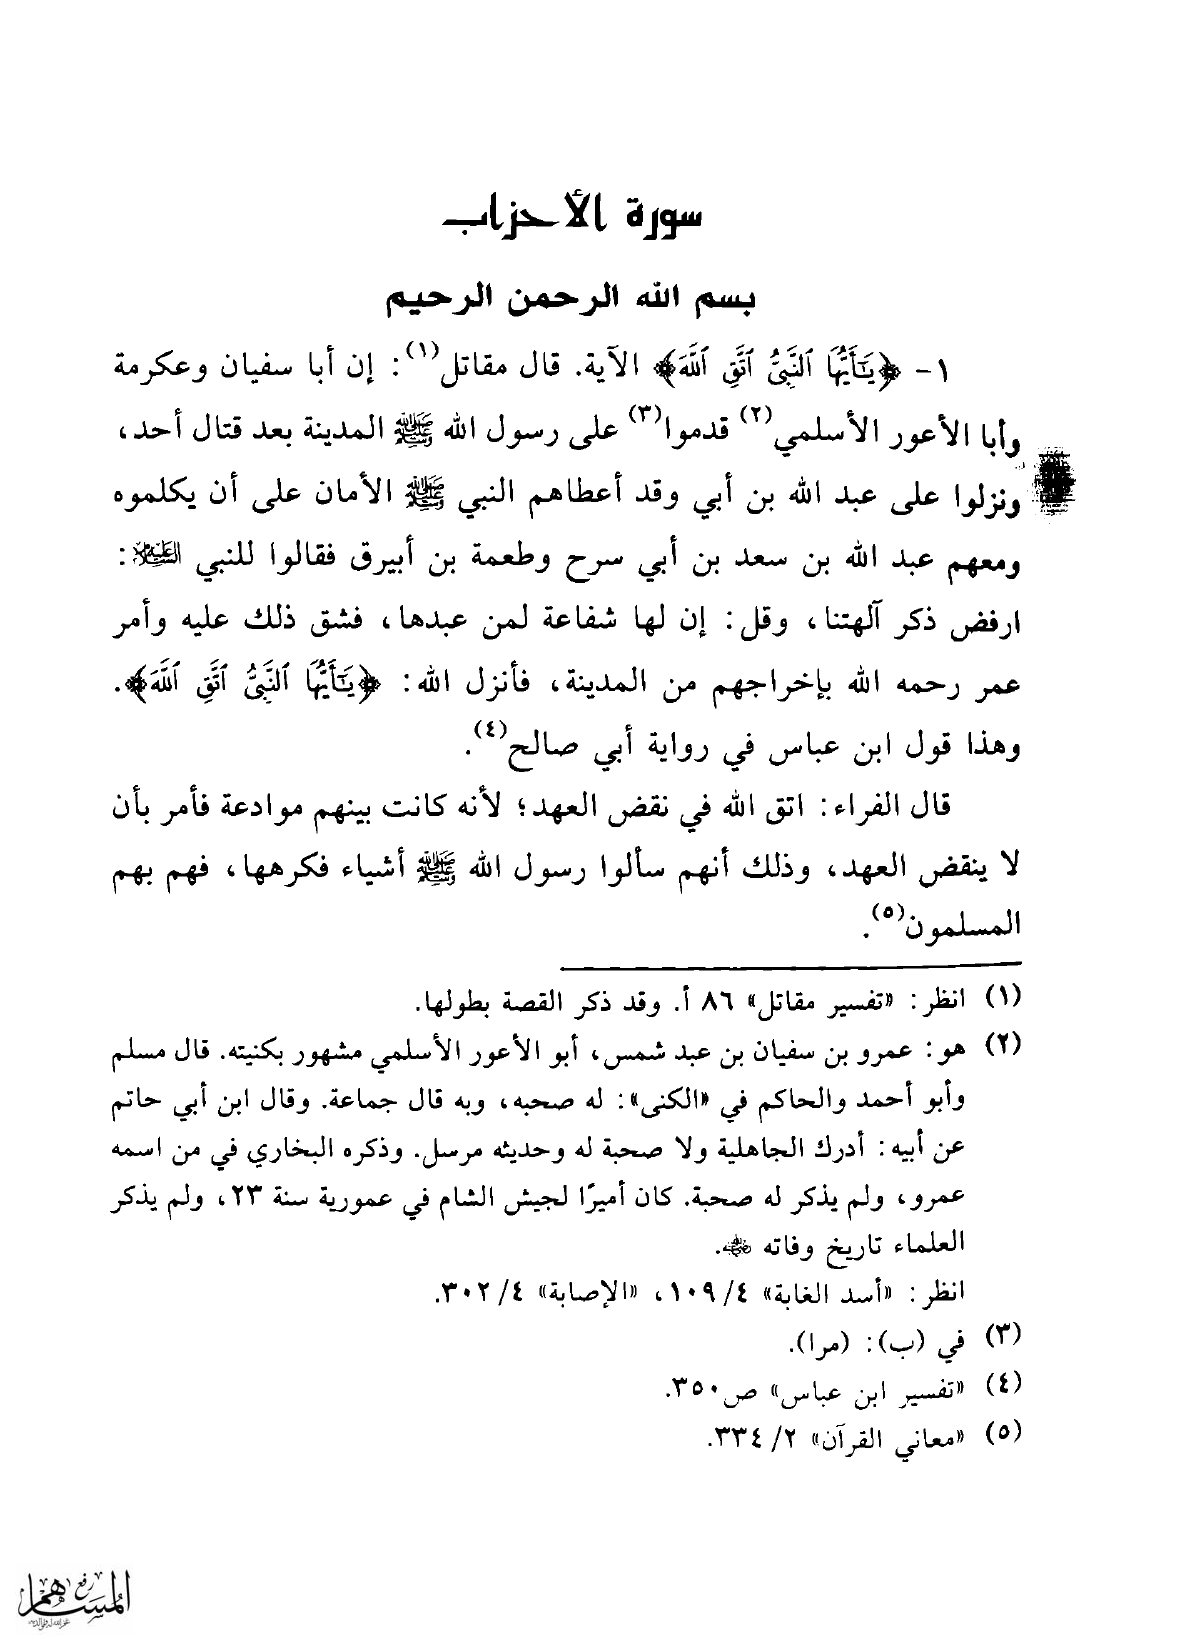 سورة الأحزاب
بسم الله الرحمن الرحيم
١- ﴿يَٰٓأَيُّهَا ٱلنَّبِيُّ ٱتَّقِ ٱللَّهَ﴾ الآية. قال مقاتل(١): إن أبا سفيان وعكرمة
وأبا الأعور الأسلمي(٢) قدموا(٣) على رسول الله ﷺ المدينة بعد قتال أحد،
ونزلوا على عبد الله بن أبي وقد أعطاهم النبي ﷺ الأمان على أن يكلموه
ومعهم عبد الله بن سعد بن أبي سرح وطعمة بن أبيرق فقالوا للنبي عليه السلام:
ارفض ذكر آلهتنا، وقل: إن لها شفاعة لمن عبدها، فشق ذلك عليه وأمر
عمر رحمه الله بإخراجهم من المدينة، فأنزل الله: ﴿يَٰٓأَيُّهَا ٱلنَّبِيُّ ٱتَّقِ ٱللَّهَ﴾.
وهذا قول ابن عباس في رواية أبي صالح(٤).
قال الفراء: اتق الله في نقض العهد؛ لأنه كانت بينهم موادعة فأمر بأن
لا ينقض العهد، وذلك أنهم سألوا رسول الله ﷺ أشياء فكرهها، فهم بهم
المسلمون(٥).
(١) انظر: «تفسير مقاتل» ٨٦ أ. وقد ذكر القصة بطولها.
(٢) هو: عمرو بن سفيان بن عبد شمس، أبو الأعور الأسلمي مشهور بكنيته. قال مسلم
وأبو أحمد والحاكم في «الكنى»: له صحبه، وبه قال جماعة. وقال ابن أبي حاتم
عن أبيه: أدرك الجاهلية ولا صحبة له وحديثه مرسل. وذكره البخاري في من اسمه
عمرو، ولم يذكر له صحبة. كان أميرًا لجيش الشام في عمورية سنة ٢٣، ولم يذكر
العلماء تاريخ وفاته رضي الله عنه.
انظر: «أسد الغابة» ٤/ ١٠٩، «الإصابة» ٤/ ٣٠٢.
(٣) في (ب): (مرا).
(٤) «تفسير ابن عباس» ص٣٥٠.
(٥) «معاني القرآن» ٢/ ٣٣٤.
رفع
المساهم